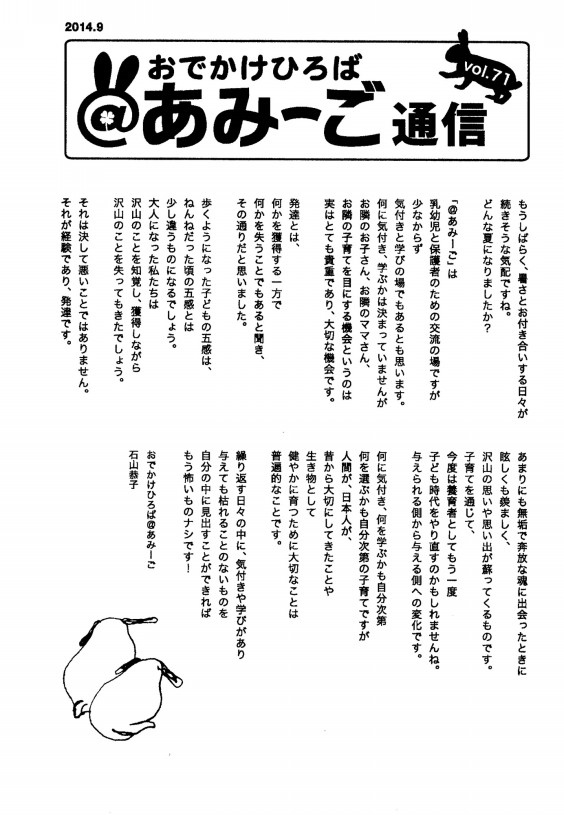 2014.9
おでかけひろば
@あみーご通信
vol.71
もうしばらく、暑さとお付き合いする日々が
続きそうな気配ですね。
どんな夏になりましたか？
「@あみーご」は
乳幼児と保護者のための交流の場ですが
少なからず
気付きと学びの場でもあるとも思います。
何に気付き、学ぶかは決まっていませんが
お隣のお子さん、お隣のママさん、
お隣の子育てを目にする機会というのは
実はとても貴重であり、大切な機会です。
発達とは、
何かを獲得する一方で
何かを失うことでもあると聞き、
その通りだと思いました。
歩くようになった子どもの五感は、
ねんねだった頃の五感とは
少し違うものになるでしょう。
大人になった私たちは
沢山のことを知覚し、獲得しながら
沢山のことを失ってもきたでしょう。
それは決して悪いことではありません。
それが経験であり、発達です。
あまりにも無垢で奔放な魂に出会ったときに
眩しくも羨ましく、
沢山の思いや思い出が蘇ってくるものです。
子育てを通じて、
今度は養育者としてもう一度
子ども時代をやり直すのかもしれませんね。
与えられる側から与える側への変化です。
何に気付き、何を学ぶかも自分次第
何を選ぶかも自分次第の子育てですが
人間が、日本人が、
昔から大切にしてきたことや
生き物として
健やかに育つために大切なことは
普遍的なことです。
繰り返す日々の中に、気付きや学びがあり
与えても枯れることのないものを
自分の中に見出すことができれば
もう怖いものナシです！
おでかけひろば@あみーご
石山恭子